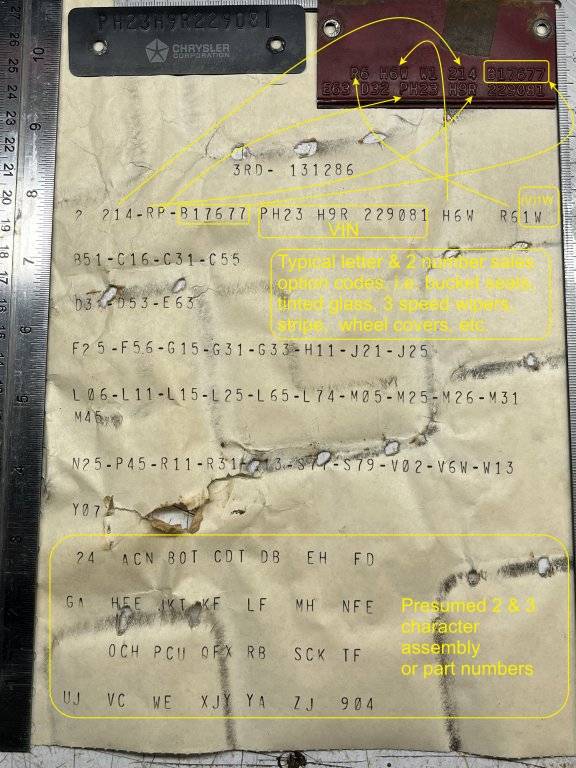 PH23H9R229081
CHRYSLER
CORPORATION
R6 H6W W1 214 B17677
E63 D32 PH23 H9R 229081
3RD- 131286
2 214-RP-B17677 PH23 H9R 229081 H6W R61W
(V)1W
VIN
B51-C16-C31-C55
Typical letter & 2 number sales
option codes, i.e. bucket seats,
tinted glass, 3 speed wipers,
stripe, wheel covers, etc.
D53-E63
F25-F56-G15-G31-G33-H11-J21-J25
L06-L11-L15-L25-L65-L74-M05-M25-M26-M31
M45
N25-P45-R11-R31 S77-S79-V02-V6W-W13
Y07
24 ACN BOT CDT DB EH FD
GA HEE JKT KF LF MH NFE
Presumed 2 & 3
character
assembly
or part numbers
OCH PCU QFX RB SCK TF
UJ VC WE XJY YA ZJ 904